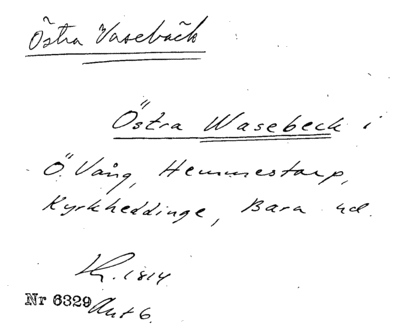 Östra Vasebäck
Östra Wasebeck i
Ö. Vång, Hemmestorp,
Kyrkheddinge, Bara hd.
Kr. 1814
Nr 6329 Akt 6.